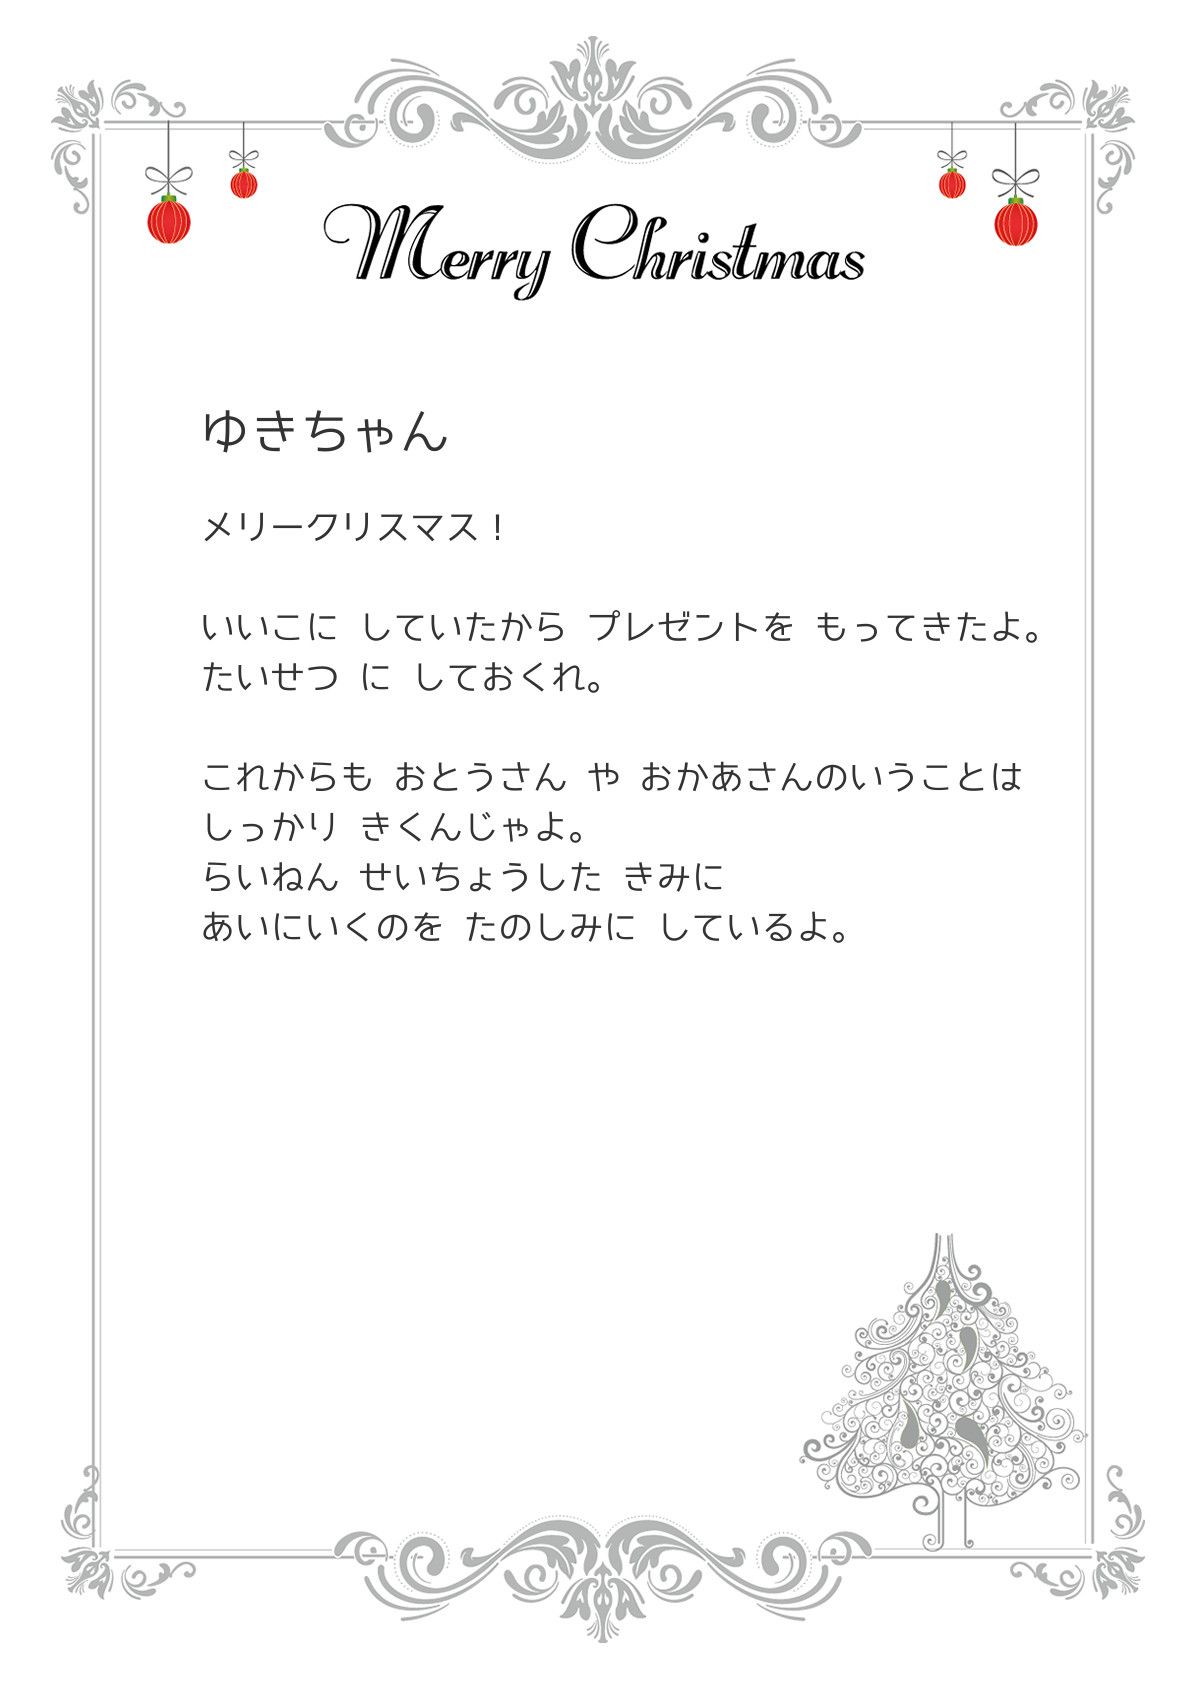 Merry Christmas
ゆきちゃん
メリークリスマス！
いいこに していたから プレゼントを もってきたよ。
たいせつ に しておくれ。
これからも おとうさん や おかあさんのいうことは
しっかり きくんじゃよ。
らいねん せいちょうした きみに
あいにいくのを たのしみに しているよ。